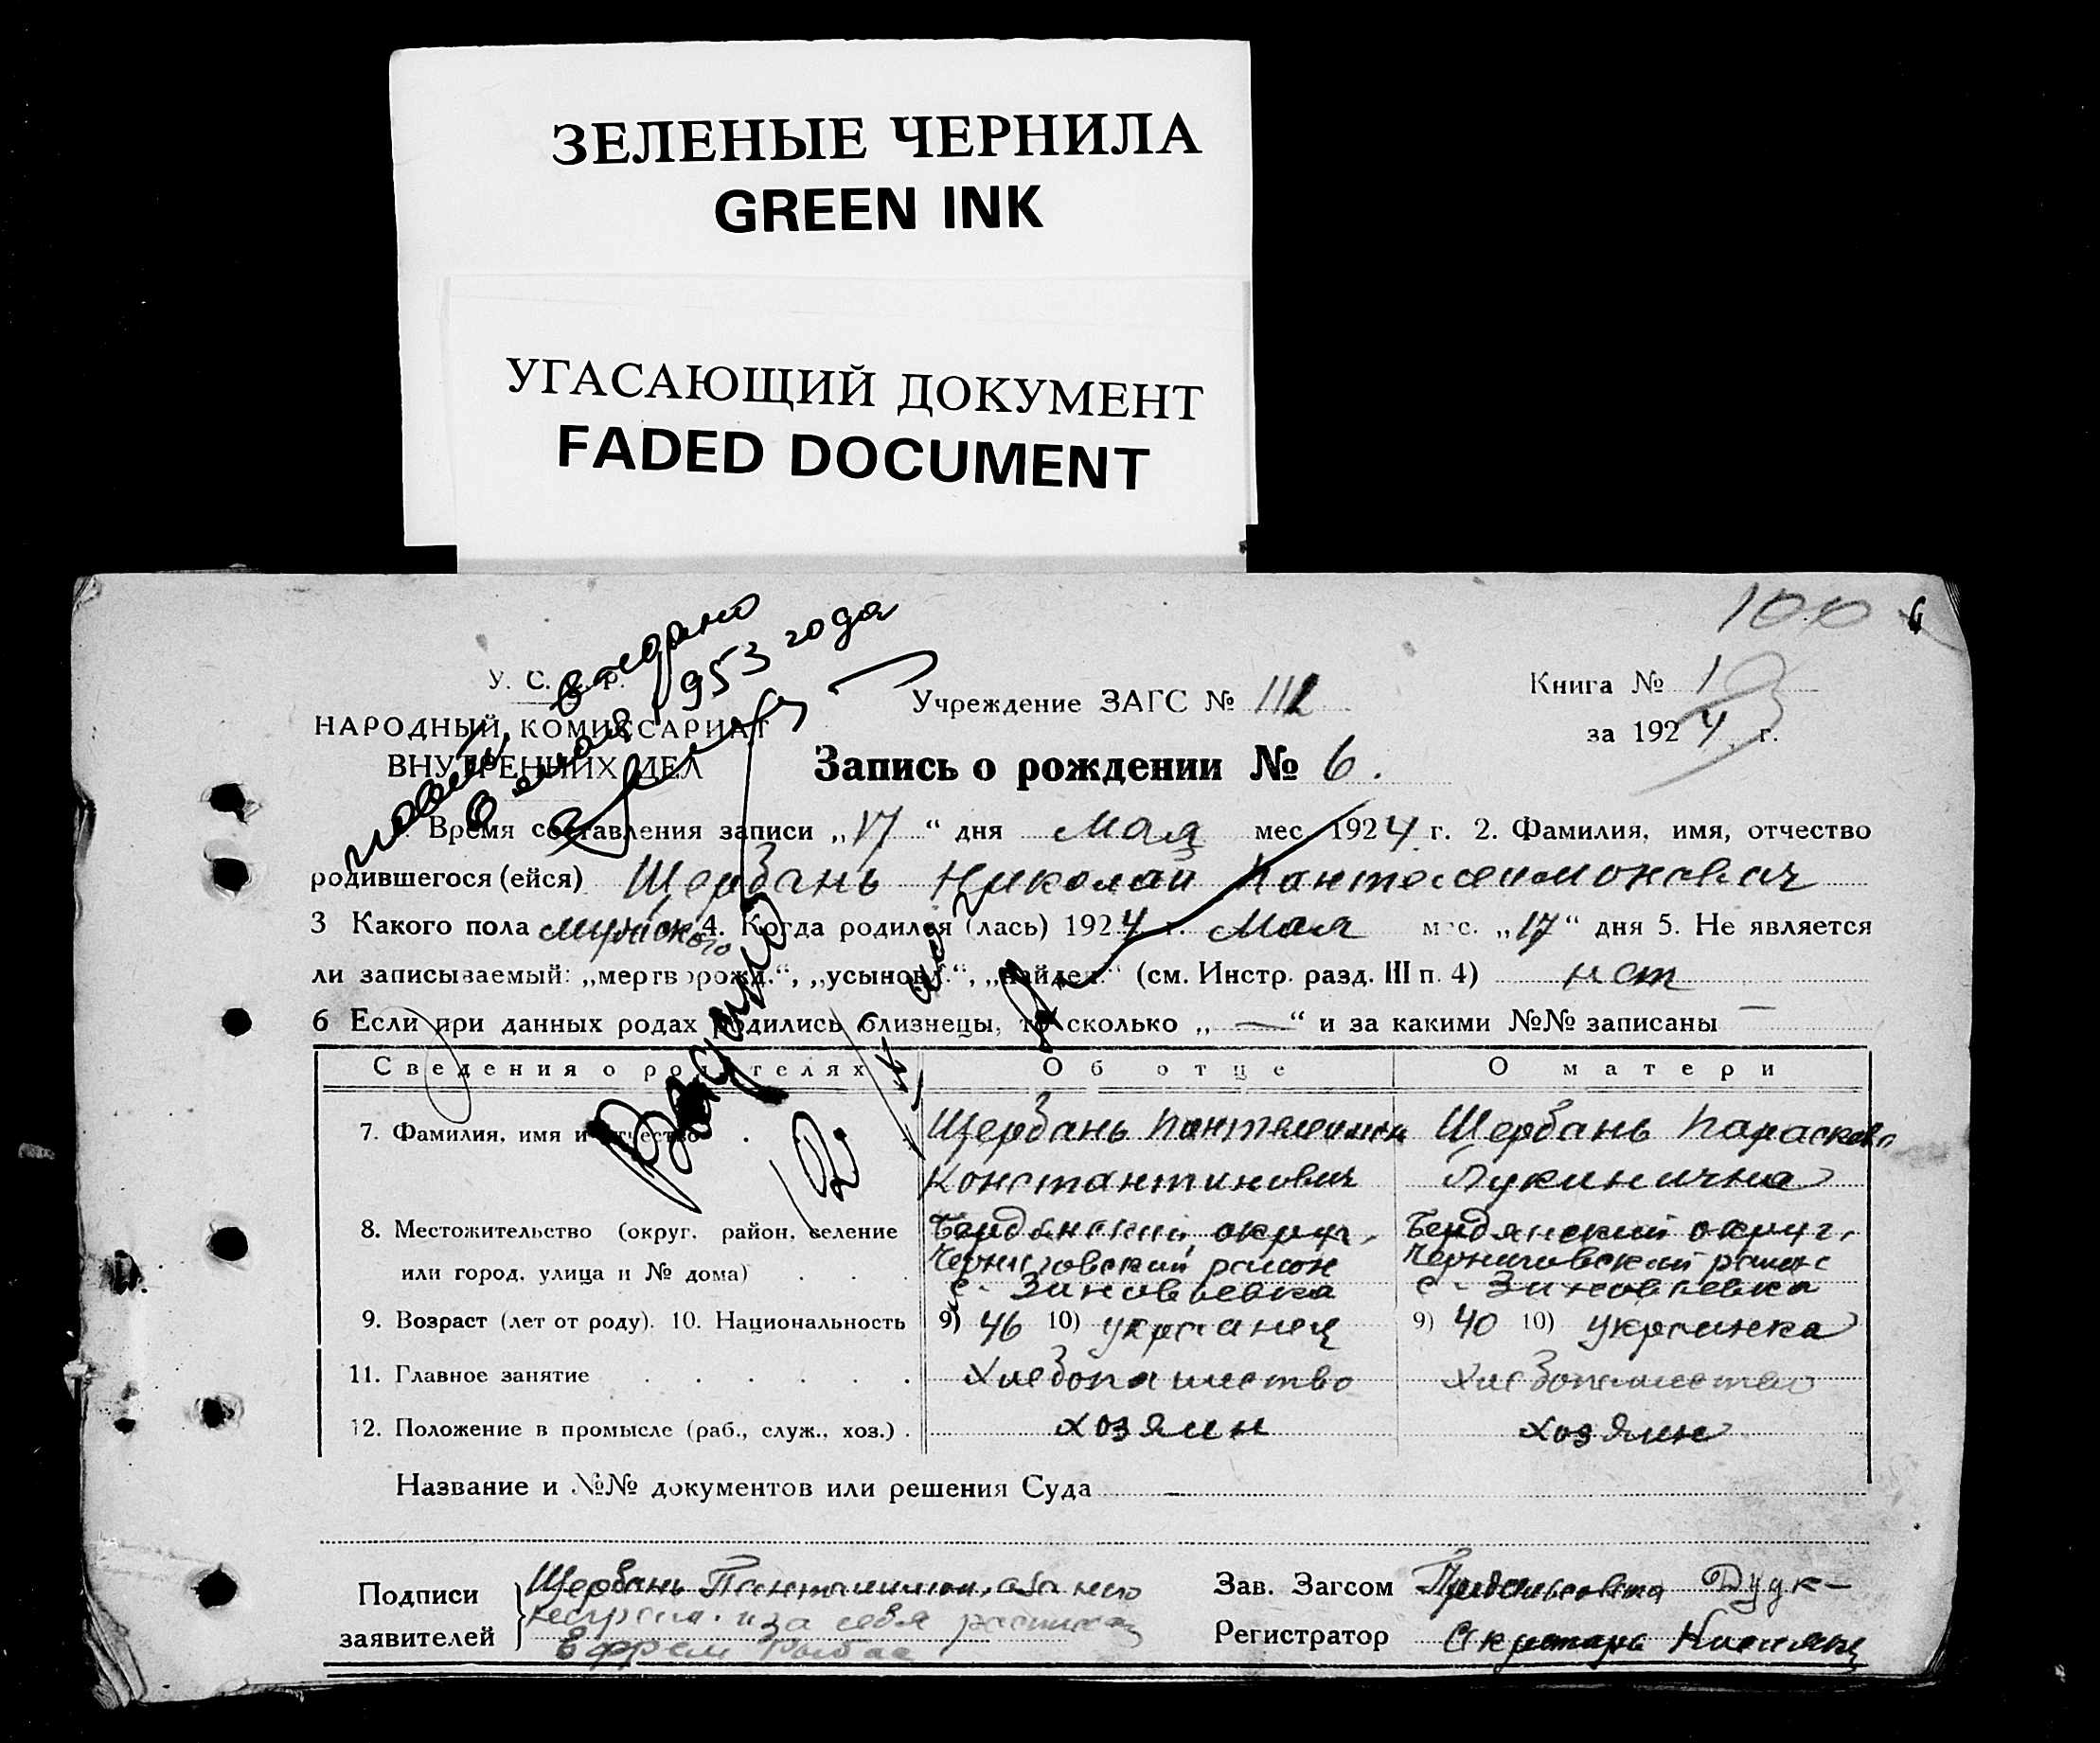 ЗЕЛЕНЫЕ ЧЕРНИЛА
GREEN INK
УГАСАЮЩИЙ ДОКУМЕНТ
FADED DOCUMENT
100
выдано
1953 года
У. С. С. Р.
НАРОДНЫЙ КОМИССАРИАТ
ВНУТРЕННИХ ДЕЛ
Учреждение ЗАГС № 112
Книга № 1
за 1924 г.
Запись о рождении № 6.
1. Время составления записи „17“ дня Мая мес. 1924 г. 2. Фамилия, имя, отчество
родившегося (ейся) Щербань Николай Пантелеимонович
3 Какого пола мужского 4. Когда родился (лась) 1924 г. Мая мес. „17“ дня 5. Не является
ли записываемый: „мертворожд.“, „усыновл.“, „найден.“ (см. Инстр. разд. III п. 4) нет
6 Если при данных родах родились близнецы, то сколько „ — “ и за какими №№ записаны —
Сведения о родителях Об отце О матери
7. Фамилия, имя и отчество Щербань Пантелеимон Щербань Параскева
Константинович Лукинична
8. Местожительство (округ, район, селение Бердянский округ, Бердянский округ,
или город, улица и № дома) Черниговский район Черниговский район
с. Зиновьевка с. Зиновьевка
9. Возраст (лет от роду). 10. Национальность 9) 46 10) украинец 9) 40 10) украинка
11. Главное занятие Хлебопашество Хлебопашество
12. Положение в промысле (раб., служ., хоз.) хозяин хозяин
Название и №№ документов или решения Суда —
Подписи Щербань Пантелимон, а за него
неграм. и за себя
заявителей Ефрем
Зав. Загсом Предсельсовета Дудк-
Регистратор Секретарь